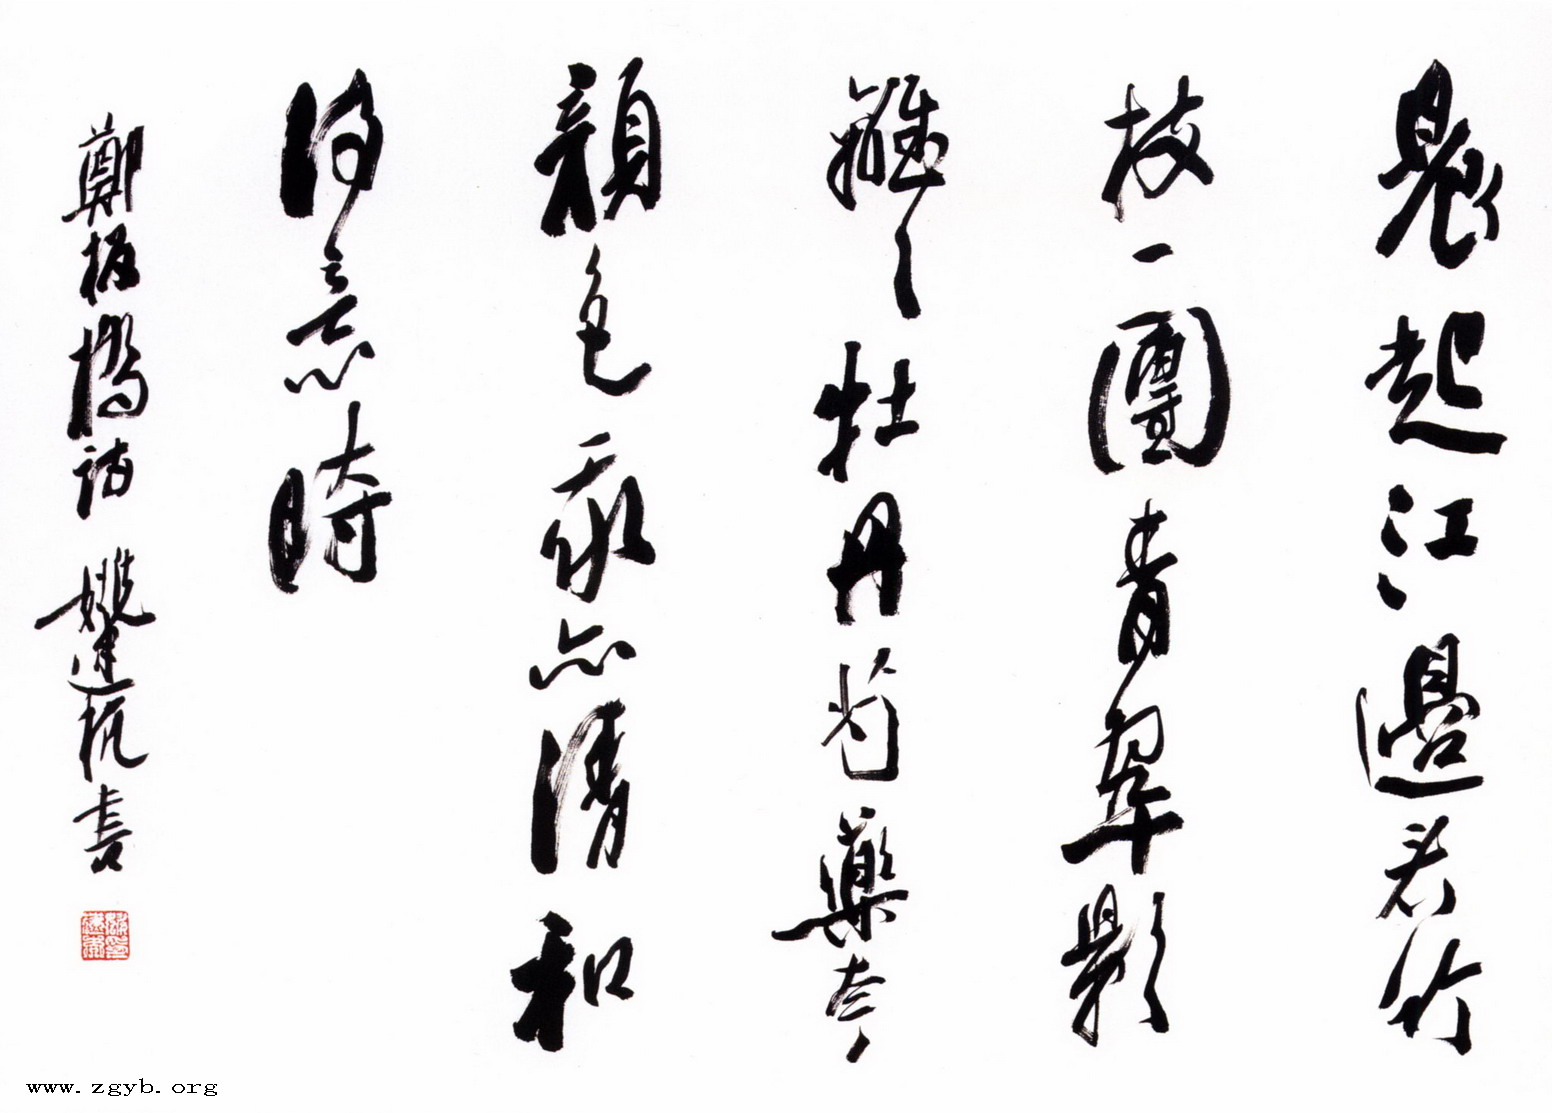 晨起江邊看竹
枝一團青翠影
離〻牡丹芍藥夸
顏色我亦清和
得意時
鄭板橋詩 姚建杭書
www.zgyb.org